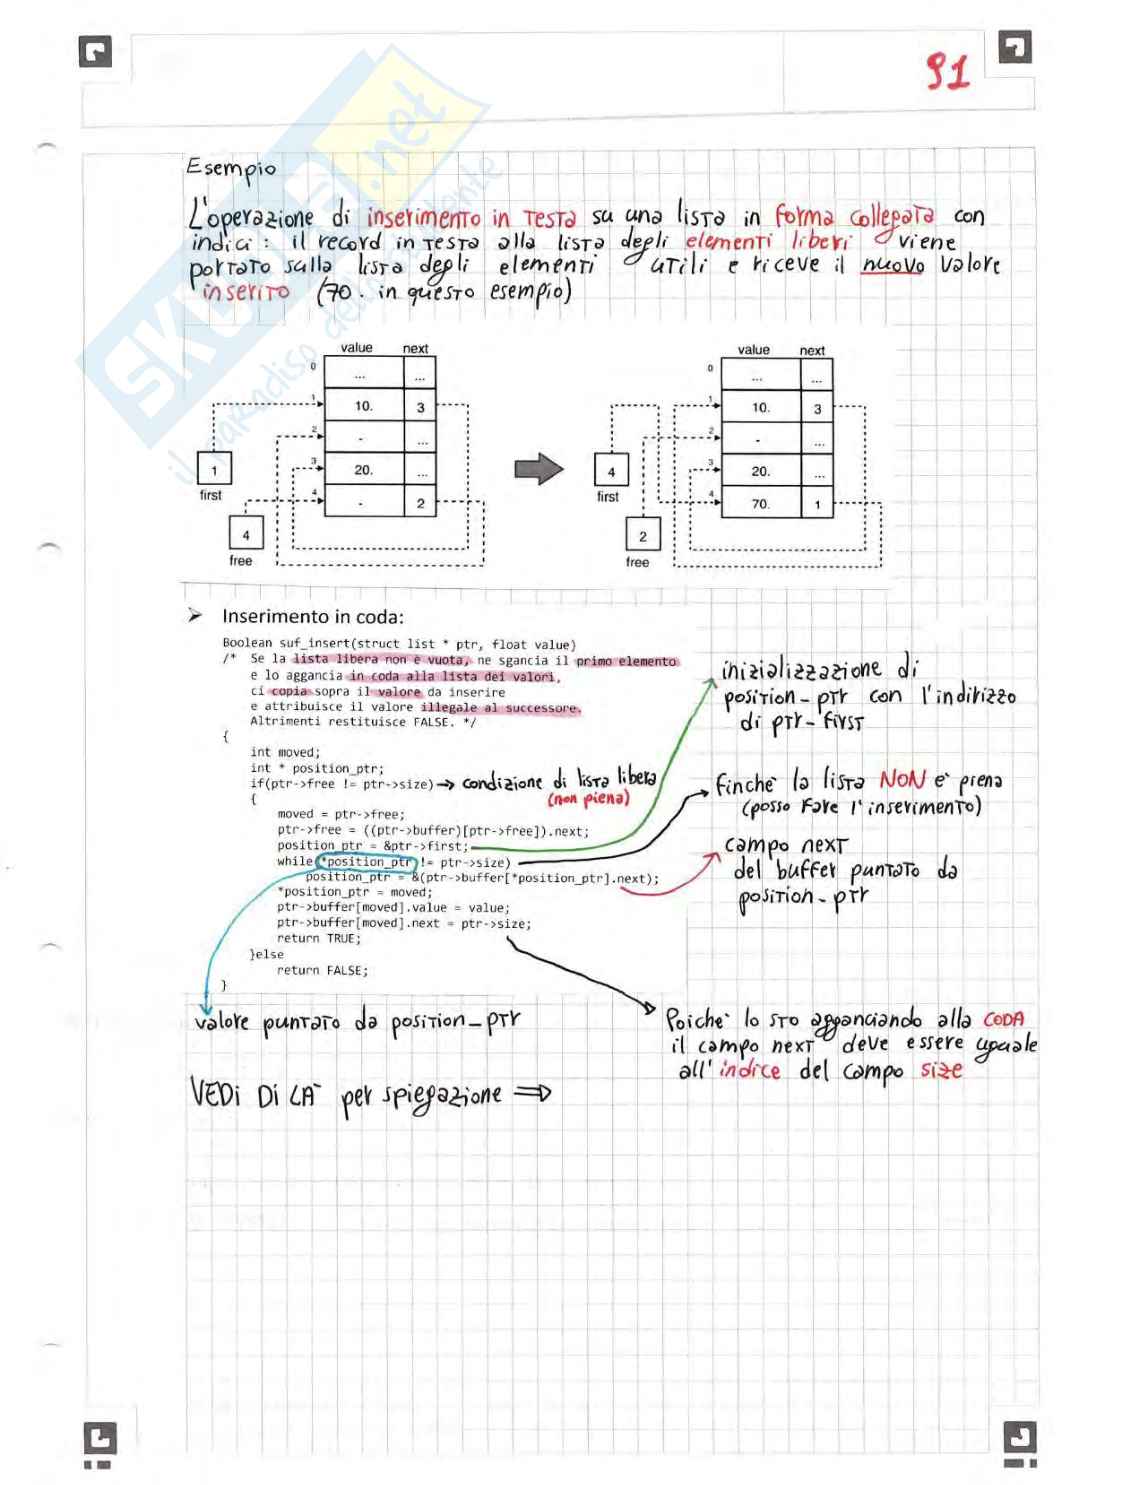 91
SKUOLA.net
il paradiso dello studente
Esempio
L'operazione di inserimento in testa su una lista in forma collegata con
indici: il record in testa alla lista degli elementi liberi viene
portato sulla lista degli elementi utili e riceve il nuovo valore
inserito (70. in questo esempio)
value next
0 ... ...
1 10. 3
2 - ...
3 20. ...
4 - 2
1
first
4
free
value next
0 ... ...
1 10. 3
2 - ...
3 20. ...
4 70. 1
4
first
2
free
➢ Inserimento in coda:
Boolean suf_insert(struct list * ptr, float value)
/* Se la lista libera non è vuota, ne sgancia il primo elemento
e lo aggancia in coda alla lista dei valori,
ci copia sopra il valore da inserire
e attribuisce il valore illegale al successore.
Altrimenti restituisce FALSE. */
{
int moved;
int * position_ptr;
if(ptr->free != ptr->size) → condizione di lista libera
(non piena)
{
moved = ptr->free;
ptr->free = ((ptr->buffer)[ptr->free]).next;
position_ptr = &ptr->first;
while(*position_ptr != ptr->size)
position_ptr = &(ptr->buffer[*position_ptr].next);
*position_ptr = moved;
ptr->buffer[moved].value = value;
ptr->buffer[moved].next = ptr->size;
return TRUE;
}else
return FALSE;
}
inizializzazione di
position-ptr con l'indirizzo
di ptr-first
finchè la lista NON è piena
(posso fare l'inserimento)
campo next
del buffer puntato da
position-ptr
valore puntato da position-ptr
Poichè lo sto agganciando alla CODA
il campo next deve essere uguale
all'indice del campo size
VEDI DI LÀ per spiegazione ⇒